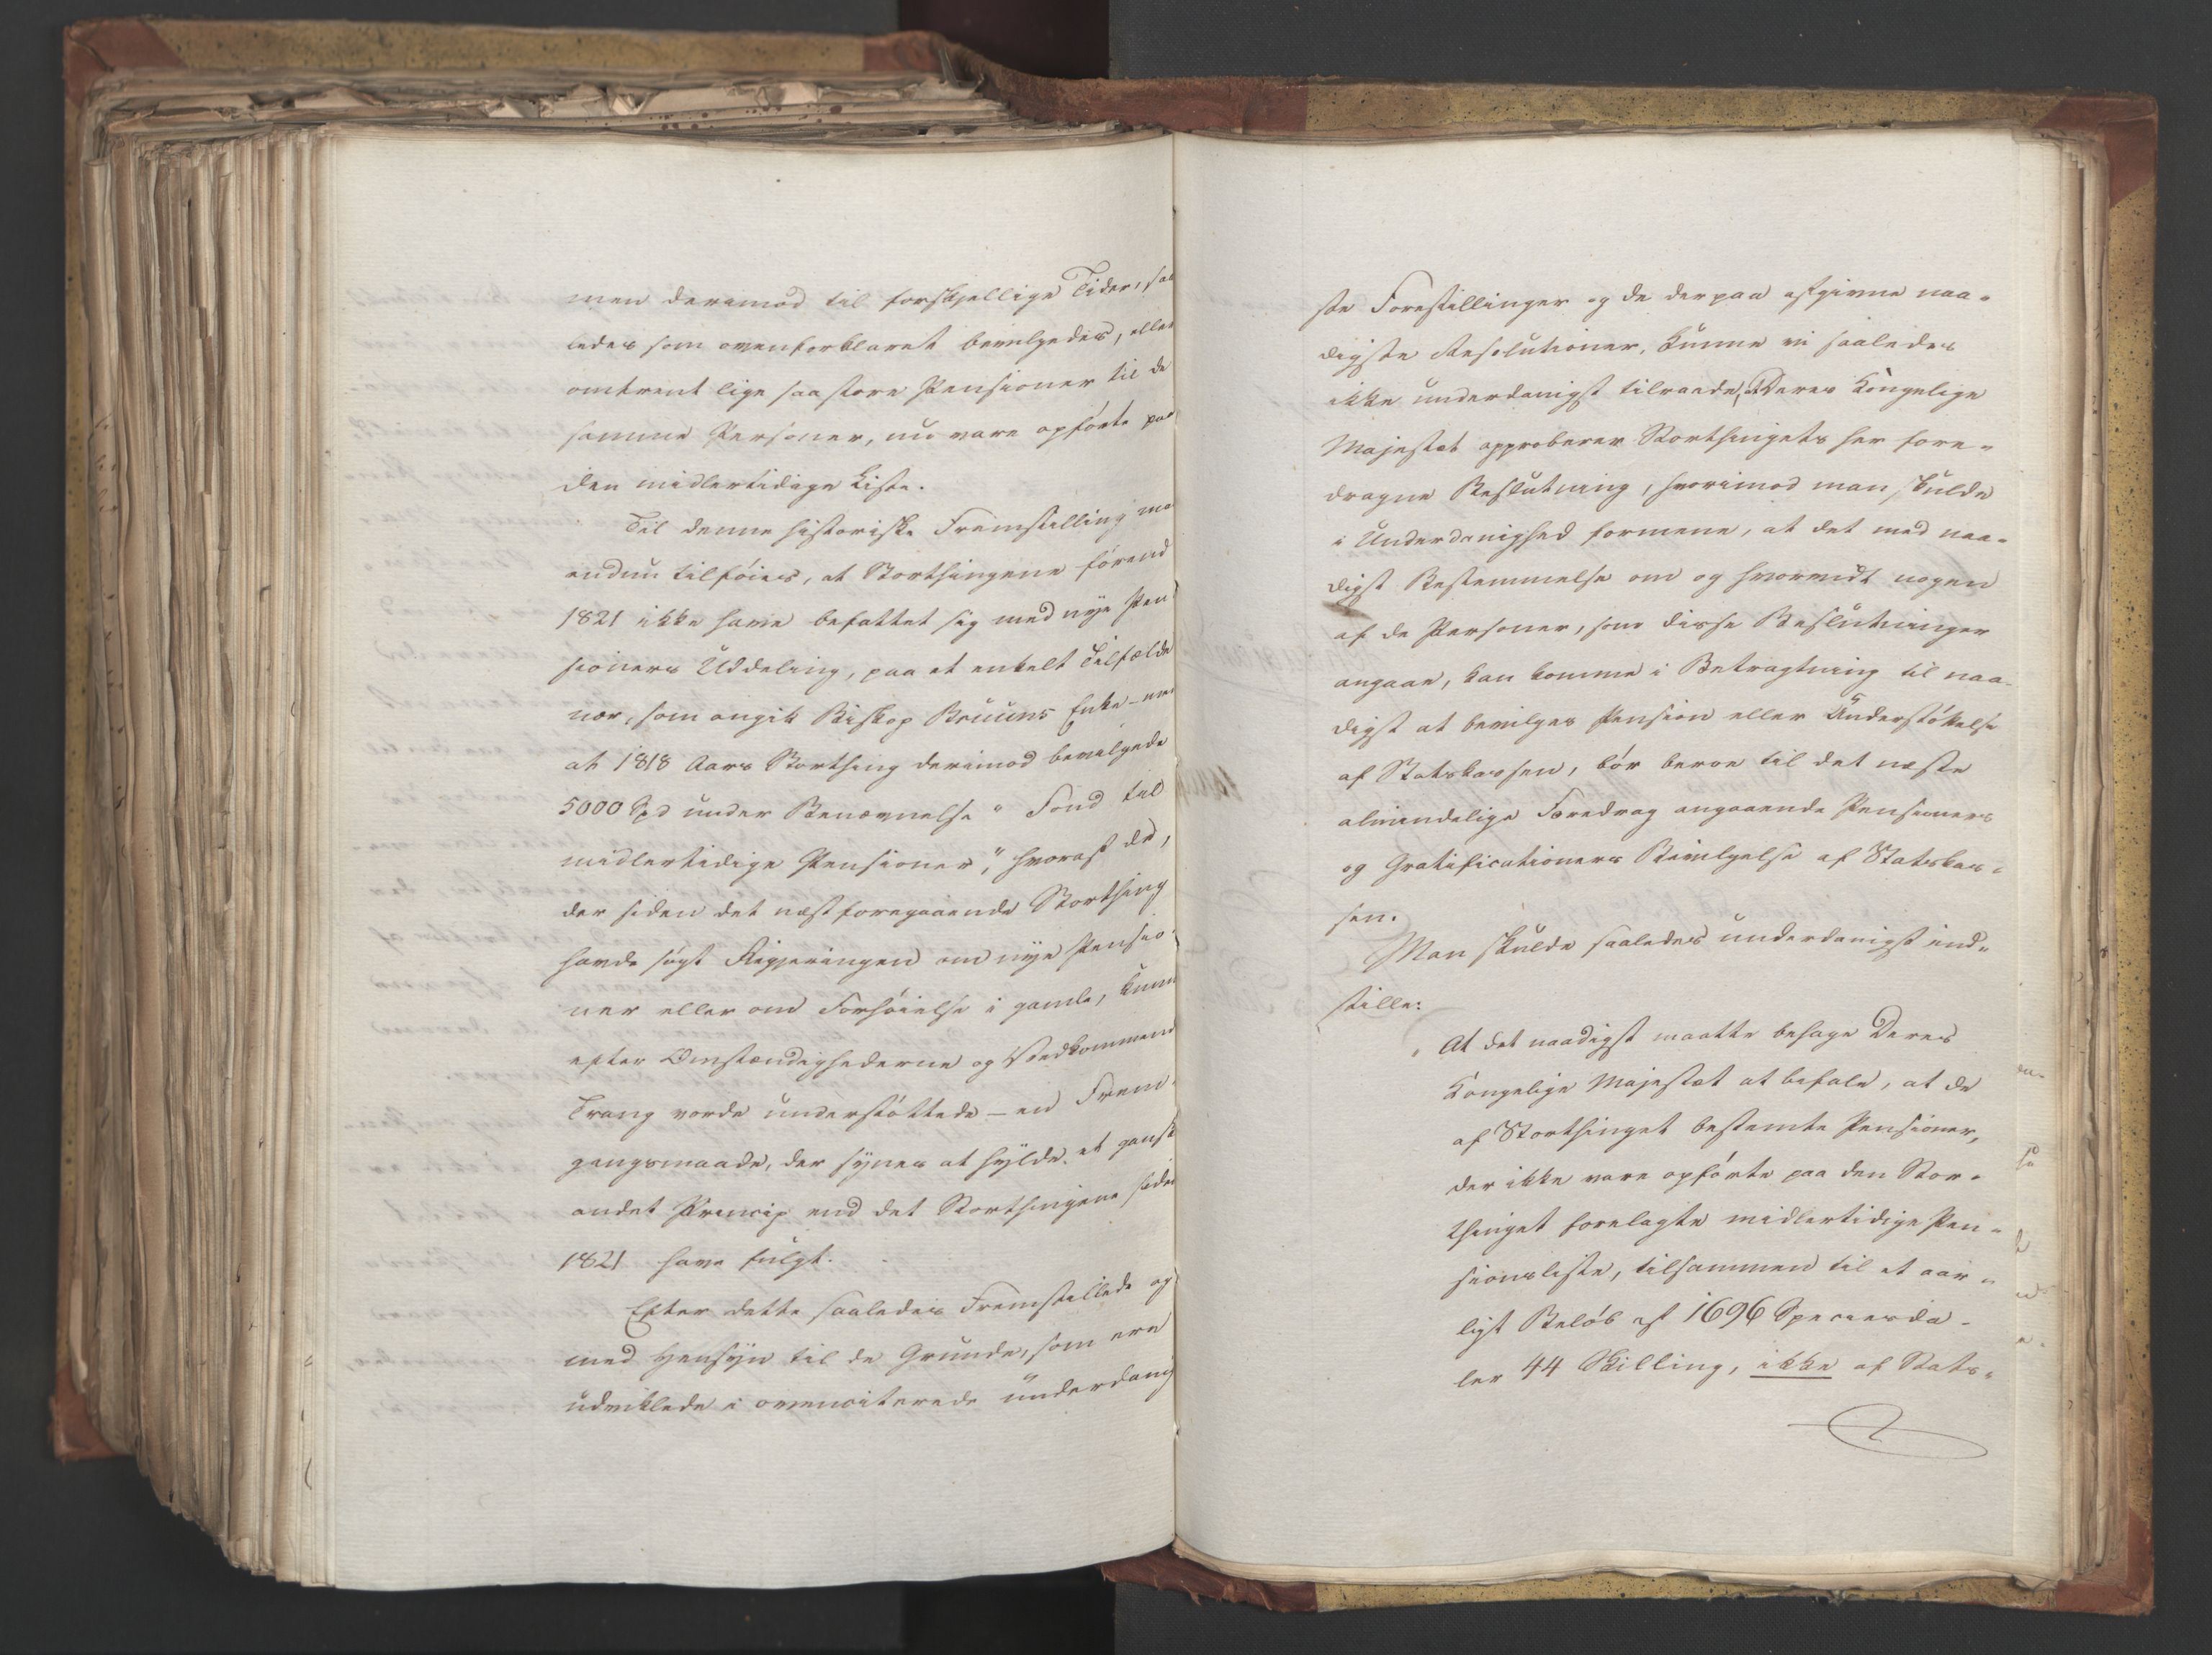 men deremod til forskjellige Tider, saa
ledes som ovenforklaret bevilgedes, eller
omtrent lige saa store Pensioner til de
samme Personer, nu vare opførte paa
den midlertidige Liste.
Til denne historiske Fremstilling maa
endnu tilføies, at Storthingene førend
1821 ikke have befattet sig med nye Pen
sioners Uddeling, paa et enkelt Tilfælde
nær, som angik Biskop Bruuns Enke - men
at 1818 Aars Storthing derimod bevilgede
5000 Spd under Benævnelse "Fond til
midlertidige Pensioner", hvoraf de,
der siden det næstforegaaende Storthing
havde søgt Regjeringen om nye Pensio-
ner eller om Forhøielse i gamle, kunn
efter Omstændighederne og Vedkommend
Trang vorde understøttede - en Frem-
gangsmaade, der synes at hylde et gansk
andet Princip end det Storthingene siden
1821 have fulgt.
Efter dette saaledes Fremstillede og
med Hensyn til de Grunde, som ere
udviklede i ovenciterede underdanig
ste Forestillinger og de derpaa afgivne naa-
digste Resolutioner, kunne vi saaledes
ikke underdanigst tilraade, Deres Kongelige
Majestæt approberer Storthingets her fore-
dragne Beslutning, hvorimod man skulde
i Underdanighed formene, at det med naa-
digst Bestemmelse om og hvorvidt nogen
af de Personer, som disse Beslutninger
angaae, kan komme i Betragtning til naa-
digst at bevilges Pension eller Understøttelse
af Statskassen, bør beroe til det næste
almindelige Foredrag angaaende Pensioners
og Gratificationers Bevilgelse af Statskas-
sen.
Man skulde saaledes underdanigst ind-
stille:
At det naadigst maatte behage Deres
Kongelige Majestæt at befale, at de
af Storthinget bestemte Pensioner,
der ikke vare opførte paa den Stor-
thinget forelagte midlertidige Pen-
sionsliste, tilsammen til et aar-
ligt Beløb af 1696 Speciesda-
ler 44 Skilling, ikke af Stats-